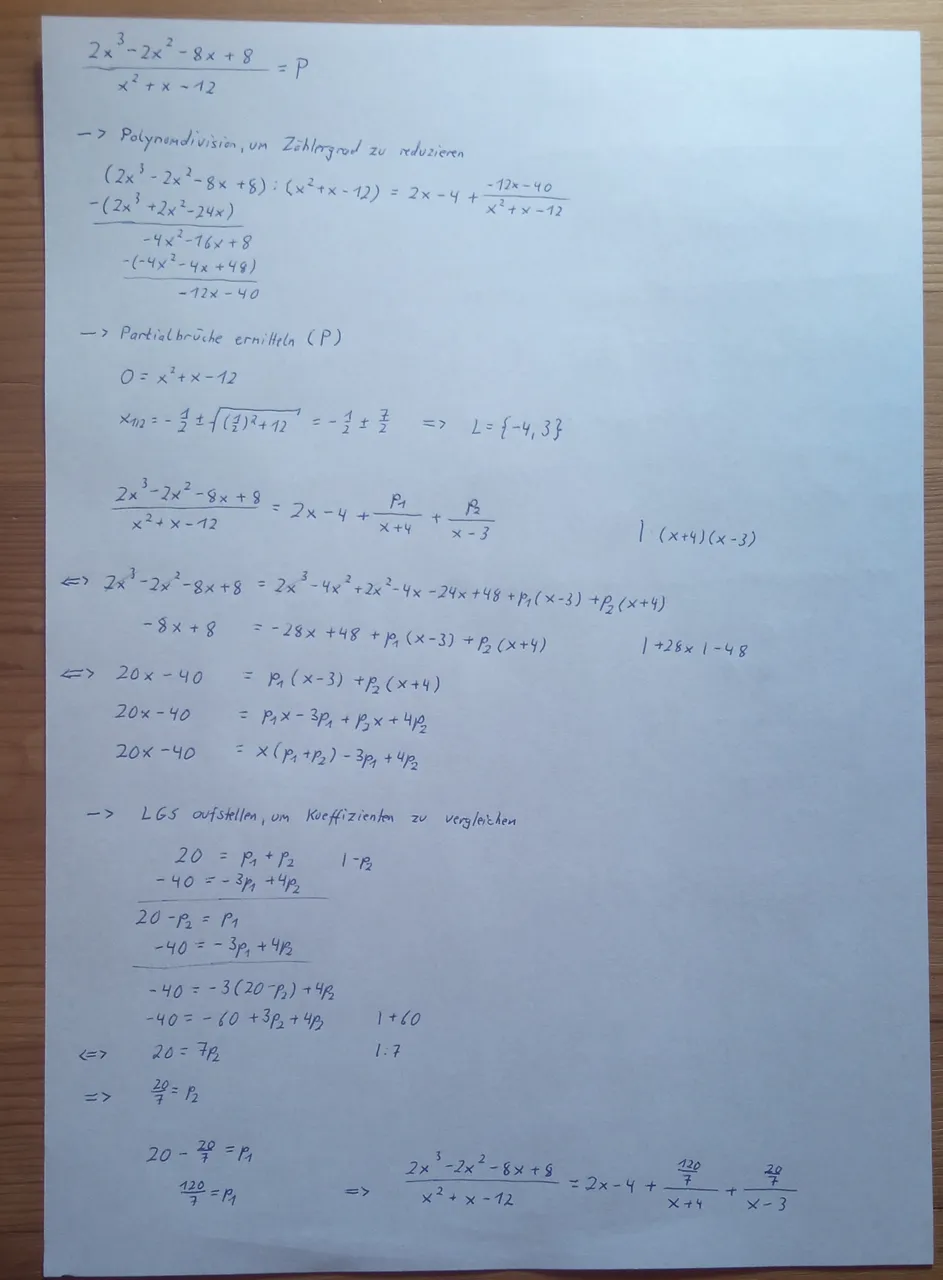 (2x³ - 2x² - 8x + 8)/(x² + x - 12) = P
-> Polynomdivision, um Zählergrad zu reduzieren
(2x³ - 2x² - 8x + 8) : (x² + x - 12) = 2x - 4 + (-12x - 40)/(x² + x - 12)
-(2x³ + 2x² - 24x)
-4x² - 16x + 8
-(-4x² - 4x + 48)
-12x - 40
-> Partialbrüche ermitteln (P)
0 = x² + x - 12
x1/2 = - 1/2 ± √((1/2)² + 12) = - 1/2 ± 7/2 => L = {-4, 3}
(2x³ - 2x² - 8x + 8)/(x² + x - 12) = 2x - 4 + p₁/(x+4) + p₂/(x-3) | · (x+4)(x-3)
<=> 2x³ - 2x² - 8x + 8 = 2x³ - 4x² + 2x² - 4x - 24x + 48 + p₁(x-3) + p₂(x+4)
-8x + 8 = -28x + 48 + p₁(x-3) + p₂(x+4) | +28x | -48
<=> 20x - 40 = p₁(x-3) + p₂(x+4)
20x - 40 = p₁x - 3p₁ + p₂x + 4p₂
20x - 40 = x(p₁+p₂) - 3p₁ + 4p₂
-> LGS aufstellen, um Koeffizienten zu vergleichen
20 = p₁ + p₂ | -p₂
-40 = -3p₁ + 4p₂
20 - p₂ = p₁
-40 = -3p₁ + 4p₂
-40 = -3(20-p₂) + 4p₂
-40 = -60 + 3p₂ + 4p₂ | +60
<=> 20 = 7p₂ | :7
=> 20/7 = p₂
20 - 20/7 = p₁
120/7 = p₁ => (2x³ - 2x² - 8x + 8)/(x² + x - 12) = 2x - 4 + (120/7)/(x+4) + (20/7)/(x-3)